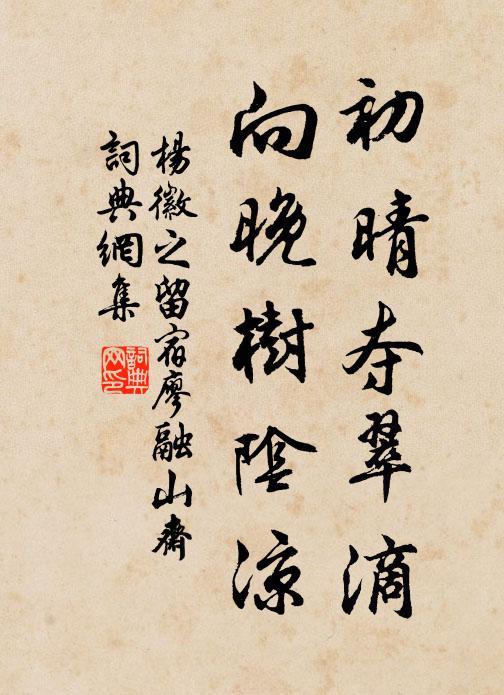 初晴夺翠滴
向晚樹陰涼
楊徽之留宿廖融山齋
詞典網集
詞典网印